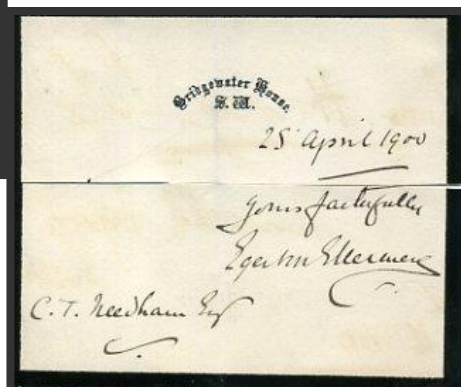 Bridgewater House.
S. W.
25 April 1900
Yours faithfully
Egerton Ellesmere
C. T. Needham Esq